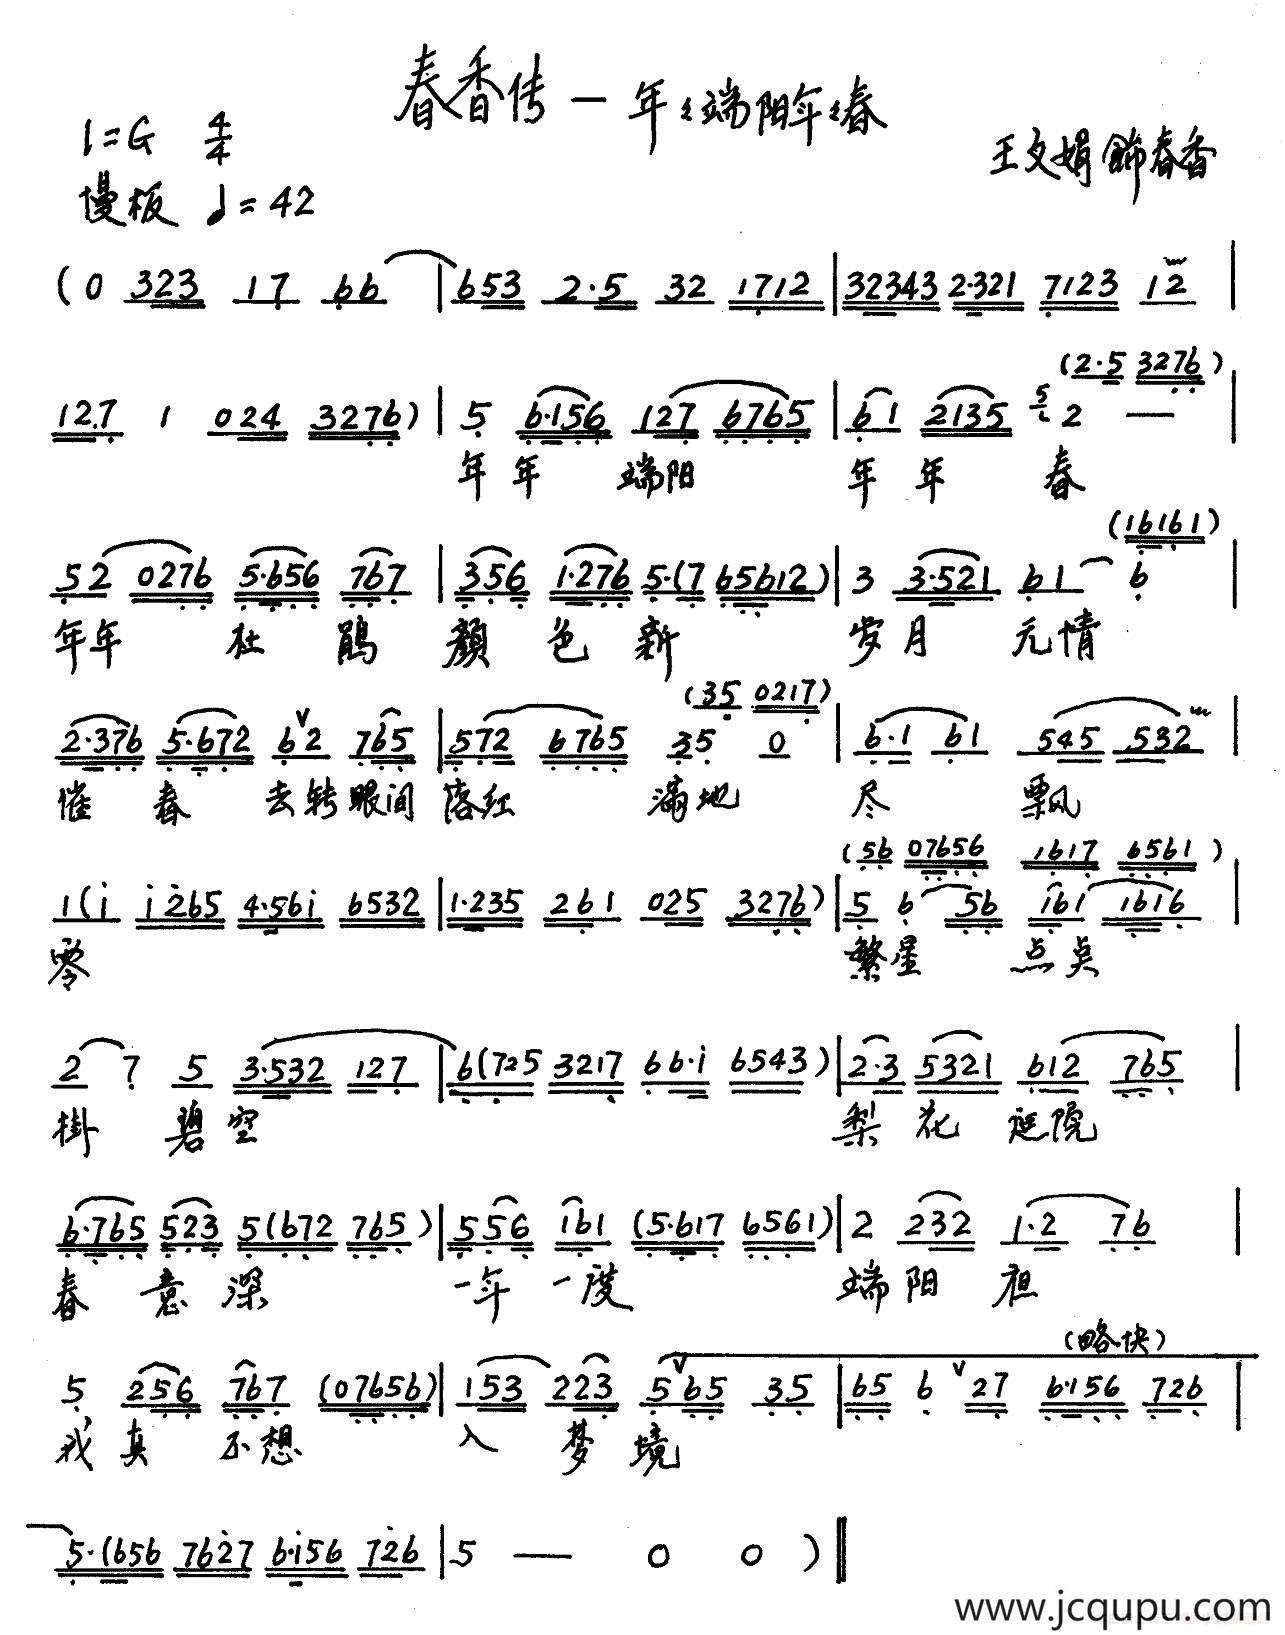 春香传 — 年々端阳年々春
1=G 4/4
王文娟 饰春香
慢板 ♩=42
(0 323 17 66 | 653 2·5 32 1712 | 32343 2·321 7123 12 |
(2·5 3276)
127 1 024 3276) | 5 6·156 127 6765 | 61 2135 2 — |
年年 端阳 年年 春
(16161)
52 0276 5·656 767 | 356 1·276 5·(7 65612) 3 3·521 61 6 |
年年 杜鹃 颜色新 岁月 无情
(35 0217)
2·376 5·672 62 765 | 572 6765 35 0 | 6·1 61 545 532 |
催春 去转眼间 落红 满地 尽 飘
(56 07656 1617 6561)
1(i i265 4·56i 6532 | 1·235 261 025 3276) | 5 6 56 161 1616 |
零 繁星 点点
2 7 5 3·532 127 | 6(725 3217 66·i 6543) | 2·3 5321 612 765 |
掛 碧空 梨花 庭院
6·765 523 5(672 765) | 556 161 (5·617 6561) | 2 232 1·2 76 |
春意深 一年一度 端阳 祖
(略快)
5 256 767 (07656) | 153 223 5 65 35 | 65 6 27 6·156 726 |
我真 不想 入梦境
5·(656 7627 6·i56 726 | 5 — 0 0 )
www.jcqupu.com